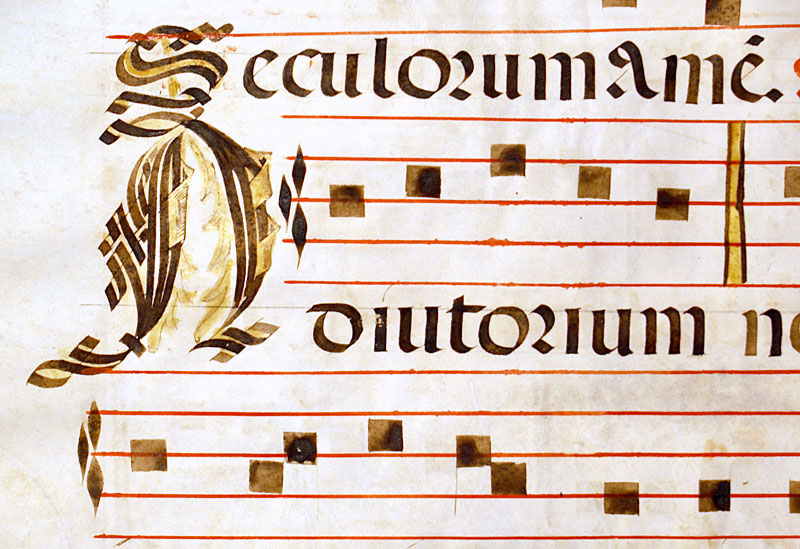 Seculorum amē.
Adiutorium no